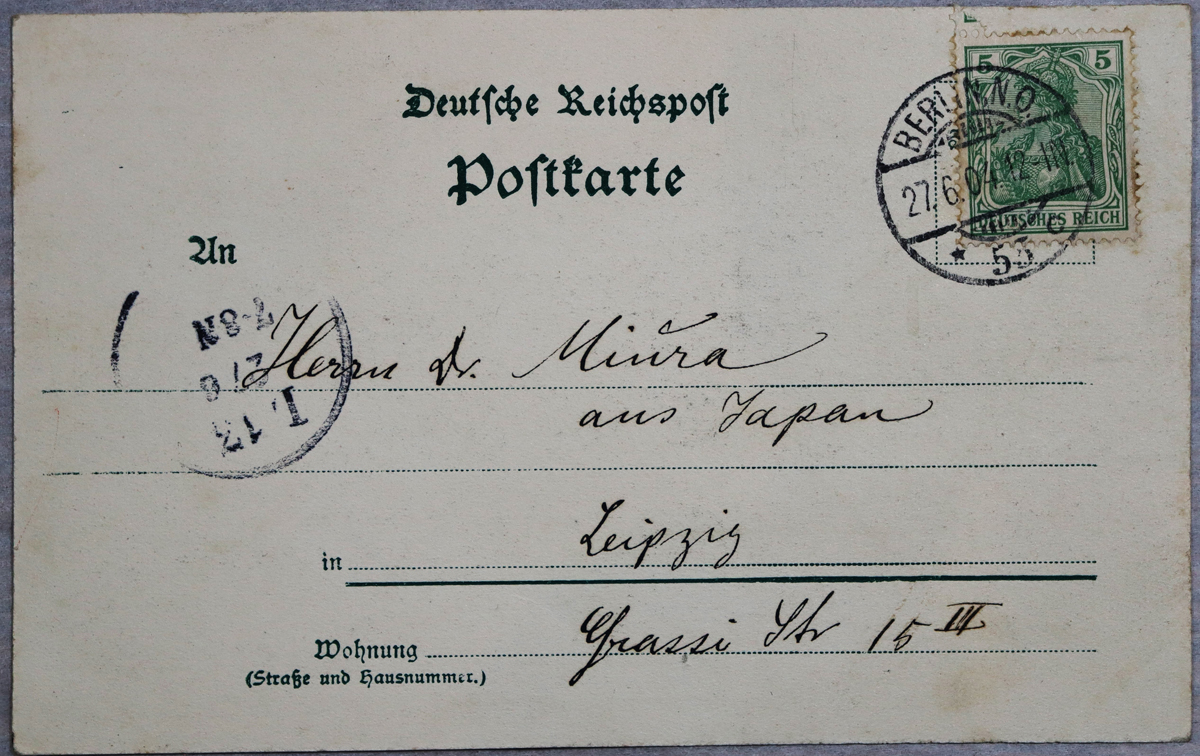 Deutsche Reichspost
Postkarte
5 5
DEUTSCHES REICH
BERLIN.N.O.
27.6.04.12-1N.
* 55 c
An
7-8N
27 6
L. 13
Herrn Dr. Miura
aus Japan
in Leipzig
Wohnung Grassi Str 15 III
(Straße und Hausnummer.)